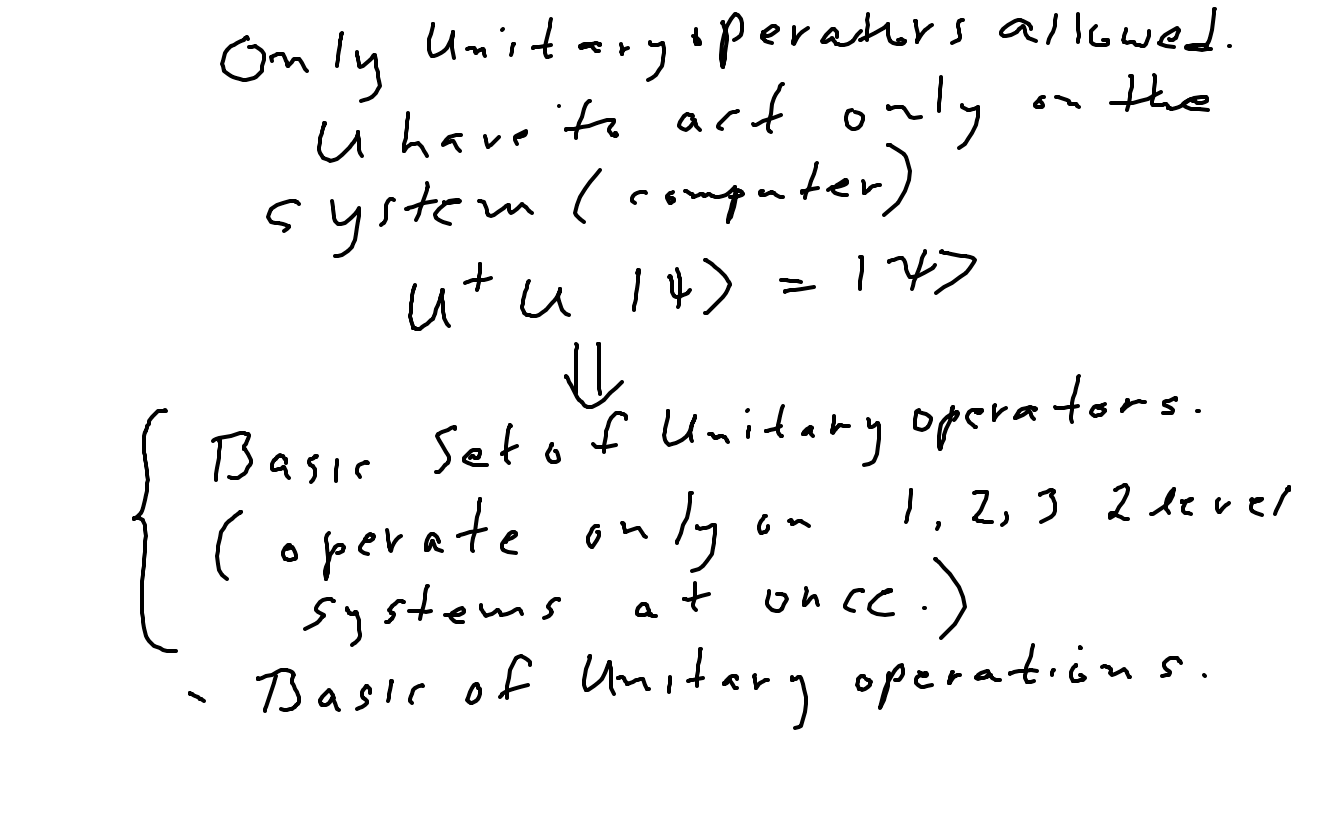 Only Unitary operators allowed.
U have to act only on the
system (computer)
U⁺ U |ψ> = |ψ>
⇓
Basic Set of Unitary operators.
( operate only on 1, 2, 3 2 level
systems at once.)
- Basic of Unitary operations.